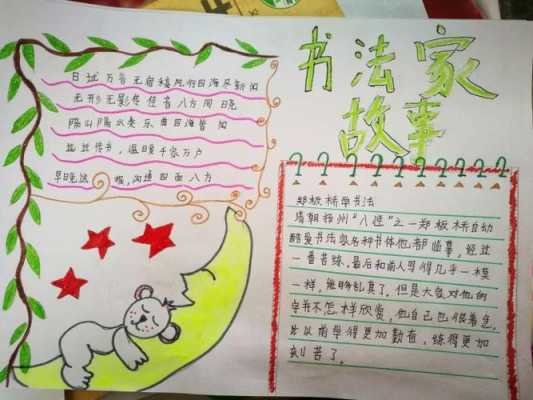 书法家
故事
日过万言无宿稿风行四海尽新闻
无形无影传佳音八方同日晚
隔山隔水奏乐曲四海皆闻
越过传书,温暖千家万户
早晚话,沟通四面八方
郑板桥学书法
清朝扬州“八怪”之一郑板桥自幼
酷爱书法家各种书体他都临摹,经过
一番苦练,最后和前人写得几乎一模
一样,能够乱真了。但是大家对他的
字并不怎样欣赏,他自己也很着急,
比以前学得更加勤奋,练得更加
刻苦了。